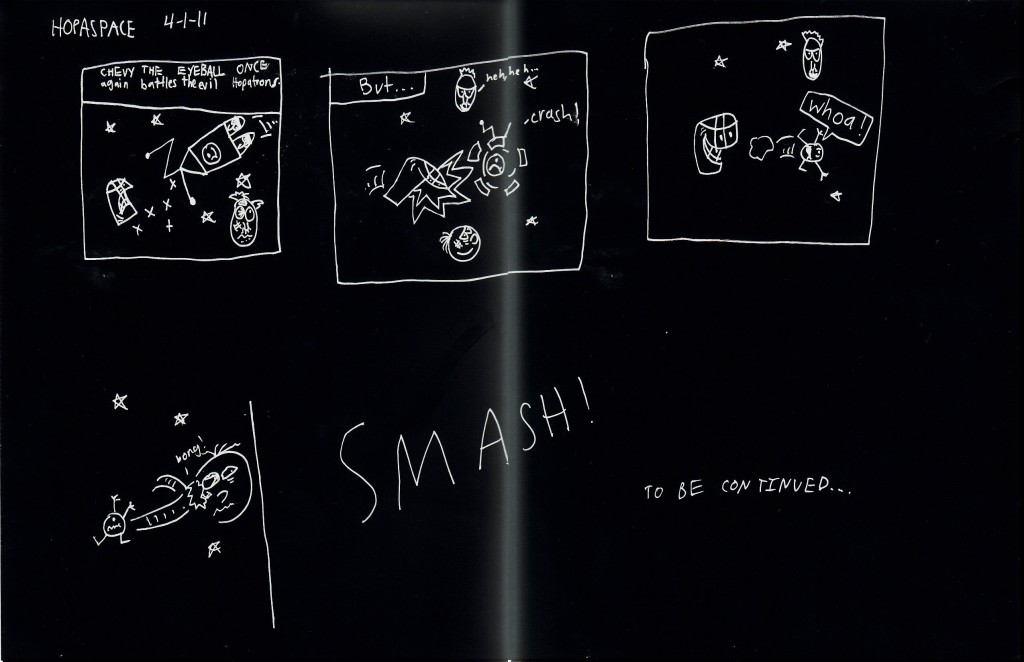 HOPASPACE 4-1-11
CHEVY THE EYEBALL ONCE
again battles the evil Hopatrons.
But...
heh, heh...
crash!
Whoa!
bong!
SMASH!
TO BE CONTINUED...